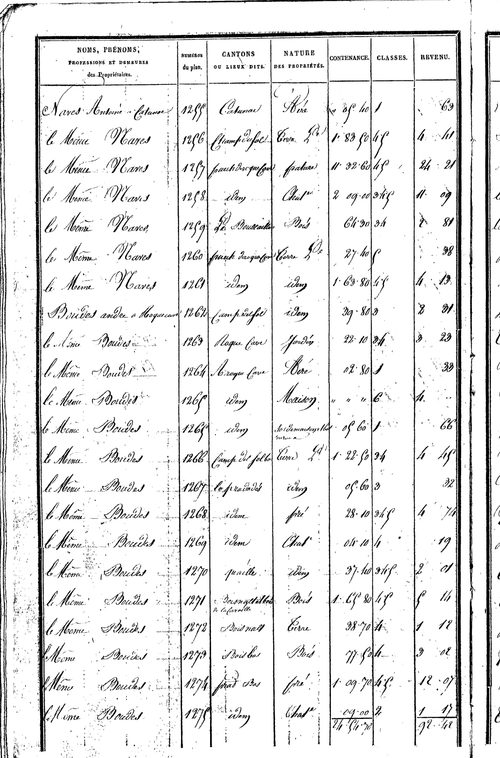 NOMS, PRÉNOMS, PROFESSIONS ET DEMEURES des Propriétaires. NUMÉROS du plan. CANTONS OU LIEUX DITS. NATURE DES PROPRIÉTÉS. CONTENANCE. CLASSES. REVENU.
Nares Antoine a 1255 Pré 05 40 1 63
le Même Nares 1256 Champ del sol Terre 1 83 50 45 4 41
le Même Nares 1257 pature 11 32 60 45 24 21
le Même Nares 1258 idem Chat 2 09 00 345 11 09
le Même Nares 1259 Bois 64 30 34 1 81
le Même Nares 1260 Terre 27 40 5 38
le Même Nares 1261 idem idem 1 63 80 45 4 13
Boudes andre a 1262 Camp del sol idem 39 80 3 2 31
le Même Boudes 1263 Roque Cave Jardin 22 10 34 3 23
le Même Boudes 1264 Cave Pré 02 80 1 33
le Même Boudes 1265 idem Maison " " " 6 4
le Même Boudes 1265 idem 05 60 1 66
le Même Boudes 1266 Camp del sol Terre 1 22 50 34 4 45
le Même Boudes 1267 idem 05 60 3 32
le Même Boudes 1268 idem pré 28 10 345 4 74
le Même Boudes 1269 idem Chat 04 10 4 19
le Même Boudes 1270 idem 37 40 345 2 01
le Même Boudes 1271 Bois 1 65 80 45 5 14
le Même Boudes 1272 Terre 38 70 4 1 12
le Même Boudes 1273 Bois 77 50 4 3 02
le Même Boudes 1274 prat Bas pré 1 09 70 45 12 07
le Même Boudes 1275 idem Chat 09 00 2 1 17
24 54 70 92 42